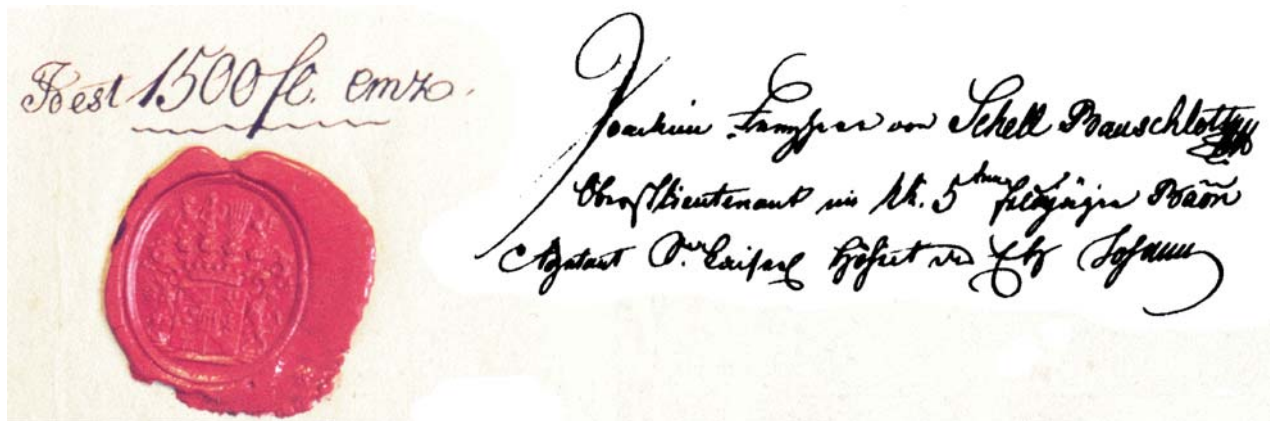 Rest 1500 fl. CMze.
Joachim Freyherr von Schell Bauschlott
Oberstlieutenant im k. 5ten Feldjäger Baõn
Adjutant Sr. Kaiserl Hoheit des Ehz Johann